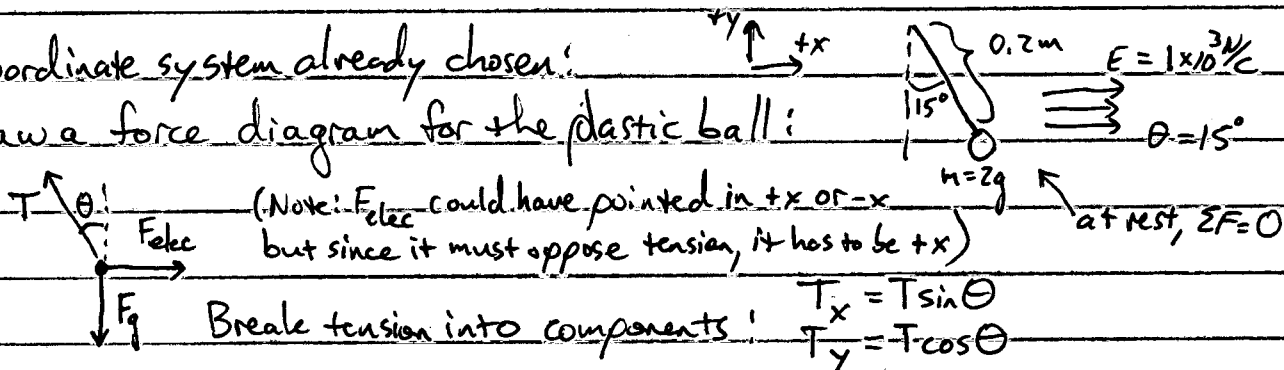 oordinate system already chosen: +y +x 0.2m E = 1x10³ N/C
aw a force diagram for the plastic ball: 15° θ = 15°
m=2g
T θ Felec (Note: Felec could have pointed in +x or -x at rest, ΣF=0
but since it must oppose tension, it has to be +x)
Fg Break tension into components: Tx = T sinθ
Ty = T cosθ